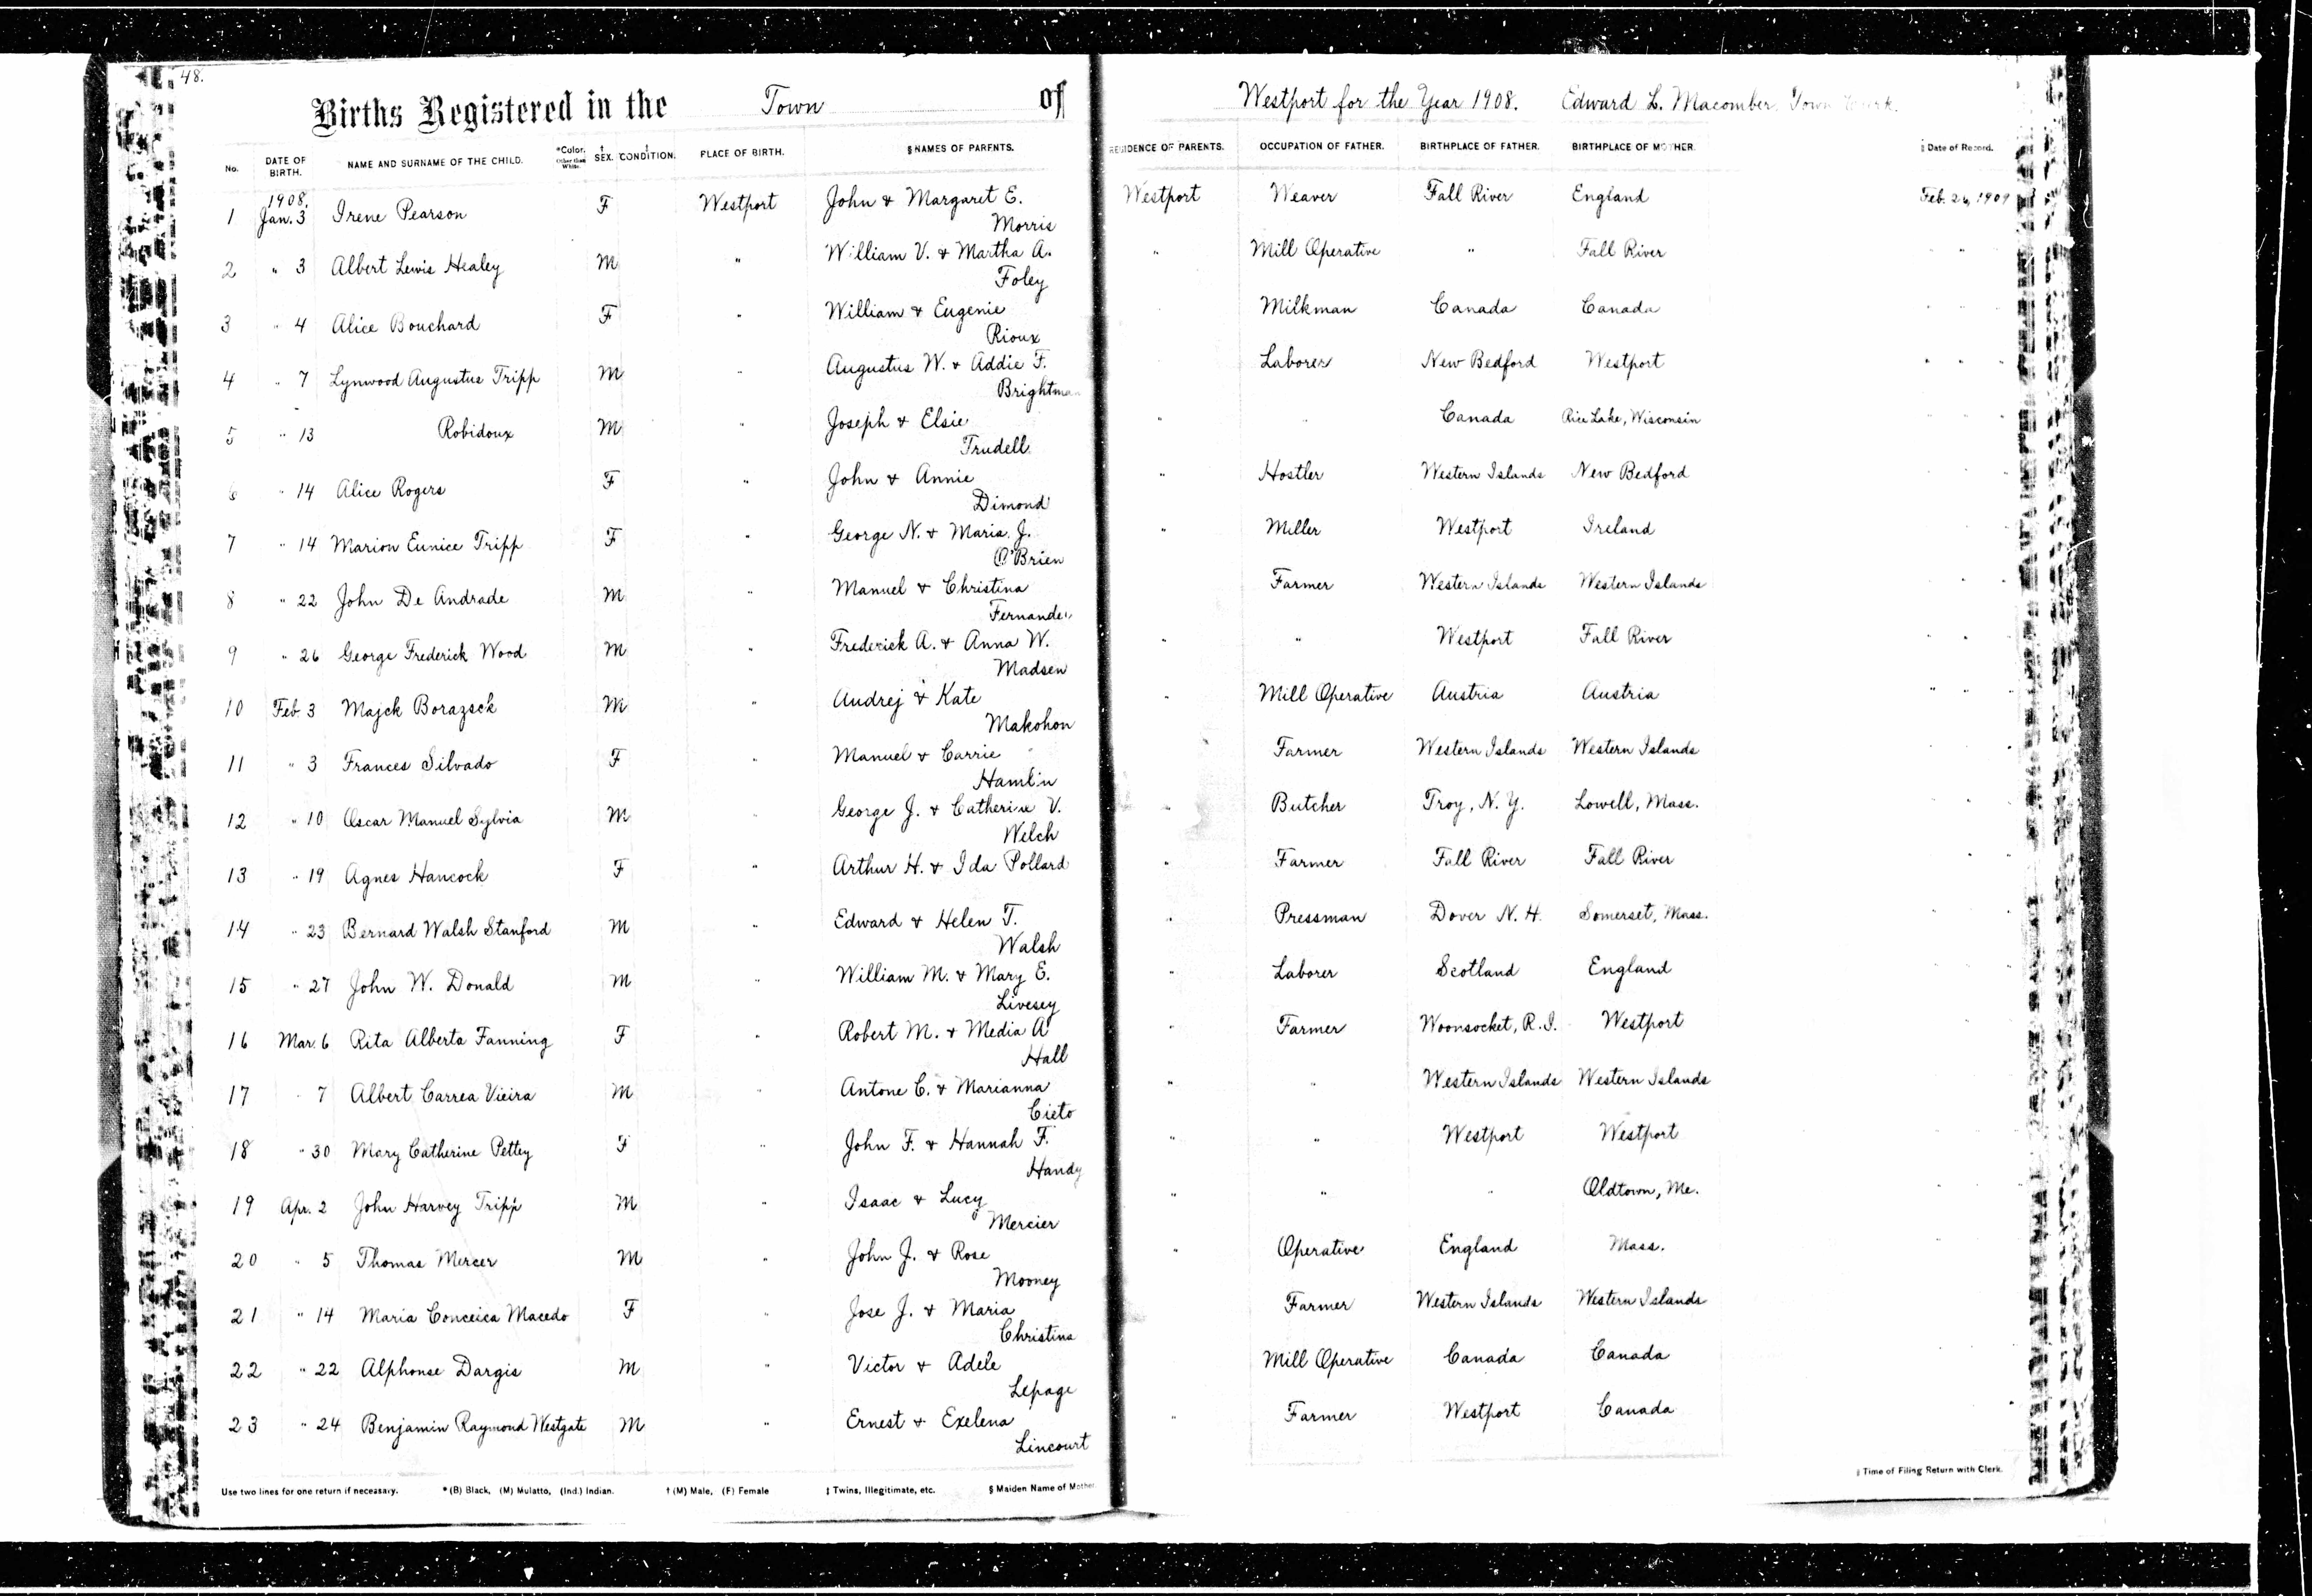 48.
Births Registered in the Town of Westport for the Year 1908. Edward L. Macomber Town Clerk.
No. DATE OF BIRTH. NAME AND SURNAME OF THE CHILD. *Color. Other than White. † SEX. ‡ CONDITION. PLACE OF BIRTH. § NAMES OF PARENTS. RESIDENCE OF PARENTS. OCCUPATION OF FATHER. BIRTHPLACE OF FATHER. BIRTHPLACE OF MOTHER. ‖ Date of Record.
1908.
1 Jan. 3 Irene Pearson F Westport John & Margaret E. Westport Weaver Fall River England Feb. 26, 1909
Morris
2 " 3 Albert Lewis Healey M " William V. & Martha A. " Mill Operative " Fall River " "
Foley
3 " 4 Alice Bouchard F " William & Eugenie Milkman Canada Canada " "
Rioux
4 " 7 Lynwood Augustus Tripp M " Augustus W. & Addie F. Laborer New Bedford Westport " "
Brightman
5 " 13 Robidoux M " Joseph & Elsie " " Canada Rice Lake, Wisconsin " "
Trudell
6 " 14 Alice Rogers F " John & Annie " Hostler Western Islands New Bedford " "
Dimond
7 " 14 Marion Eunice Tripp F " George N. & Maria J. " Miller Westport Ireland " "
O'Brien
8 " 22 John De Andrade M " Manuel & Christina Farmer Western Islands Western Islands " "
Fernandes
9 " 26 George Frederick Wood M " Frederick A. & Anna W. " " Westport Fall River " "
Madsen
10 Feb. 3 Majck Borazsck M " Audrej & Kate " Mill Operative Austria Austria " "
Makohon
11 " 3 Frances Silvado F " Manuel & Carrie " Farmer Western Islands Western Islands " "
Hamlin
12 " 10 Oscar Manuel Sylvia M " George J. & Catherine V. " Butcher Troy, N. Y. Lowell, Mass. "
Welch
13 " 19 Agnes Hancock F " Arthur H. & Ida Pollard " Farmer Fall River Fall River " "
14 " 23 Bernard Walsh Stanford M " Edward & Helen T. " Pressman Dover N. H. Somerset, Mass. " "
Walsh
15 " 27 John W. Donald M " William M. & Mary E. " Laborer Scotland England " "
Livesey
16 Mar. 6 Rita Alberta Fanning F " Robert M. & Media A " Farmer Woonsocket, R.I. Westport " "
Hall
17 " 7 Albert Carrea Vieira M " Antone C. & Marianna " " Western Islands Western Islands "
Cieto
18 " 30 Mary Catherine Pettey F " John F. & Hannah F. " " Westport Westport "
Handy
19 Apr. 2 John Harvey Tripp M " Isaac & Lucy " " " Oldtown, Me. "
Mercier
20 " 5 Thomas Mercer M " John J. & Rose " Operative England Mass. "
Mooney
21 " 14 Maria Conceica Macedo F " Jose J. & Maria Farmer Western Islands Western Islands
Christina
22 " 22 Alphonse Dargis M " Victor & Adele Mill Operative Canada Canada
Lepage
23 " 24 Benjamin Raymond Westgate M " Ernest & Exelena " Farmer Westport Canada
Lincourt
Use two lines for one return if necessary. * (B) Black, (M) Mulatto, (Ind.) Indian. † (M) Male, (F) Female ‡ Twins, Illegitimate, etc. § Maiden Name of Mother. ‖ Time of Filing Return with Clerk.